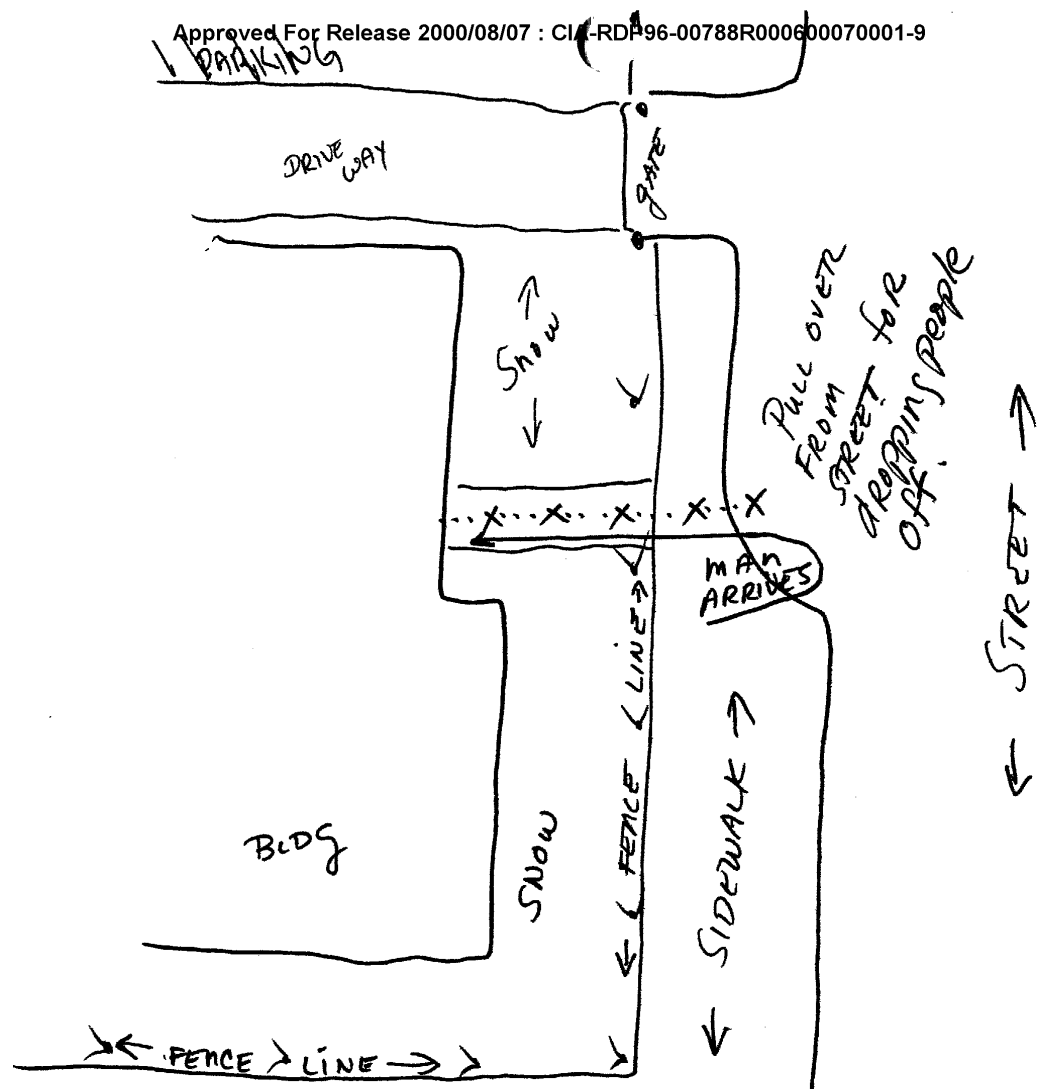 Approved For Release 2000/08/07 : CIA-RDP96-00788R000600070001-9
PARKING
DRIVE
WAY
gATE
Snow
PULL OVER
FROM
STREET for
dROPPINg People
Off.
X X X X X
MAn
ARRIVES
STREET
FENCE LINE
SIDEWALK
BLDg
SNOW
FENCE LINE